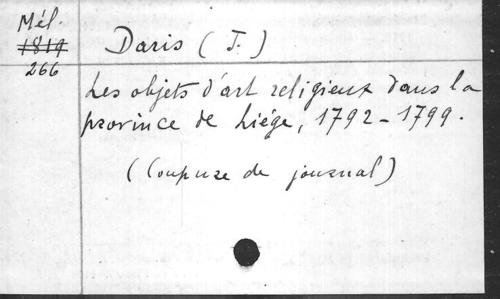 Mél.
1819
266
Daris (J.)
Les objets d'art religieux dans la
province de Liége, 1792-1799.
(Coupure de journal)